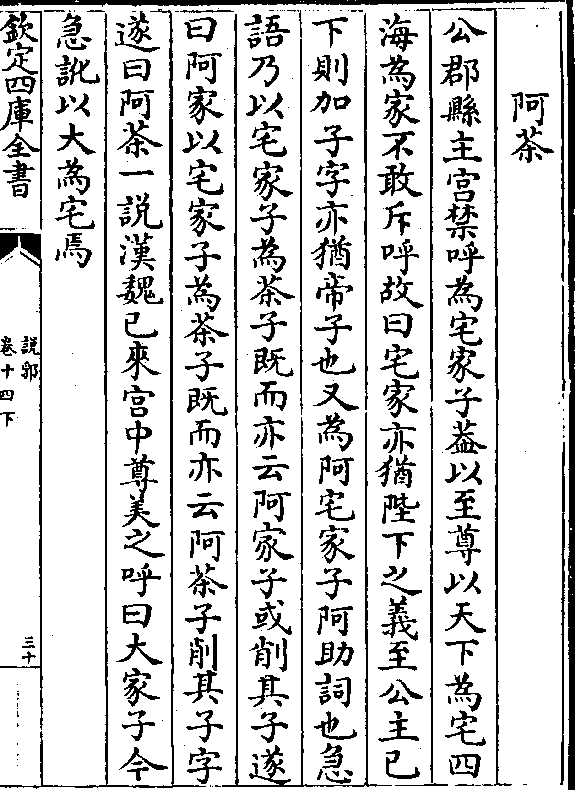 阿茶
公郡縣主宫禁呼為宅家子葢以至尊以天下為宅四
海為家不敢斥呼故曰宅家亦猶陛下之義至公主已
下則加子字亦猶帝子也又為阿宅家子阿助詞也急
語乃以宅家子為茶子既而亦云阿家子或削其子遂
曰阿家以宅家子為茶子既而亦云阿茶子削其子字
遂曰阿茶一説漢魏已來宫中尊美之呼曰大家子今
急訛以大為宅焉
欽定四庫全書
説郛
卷十四下
三十